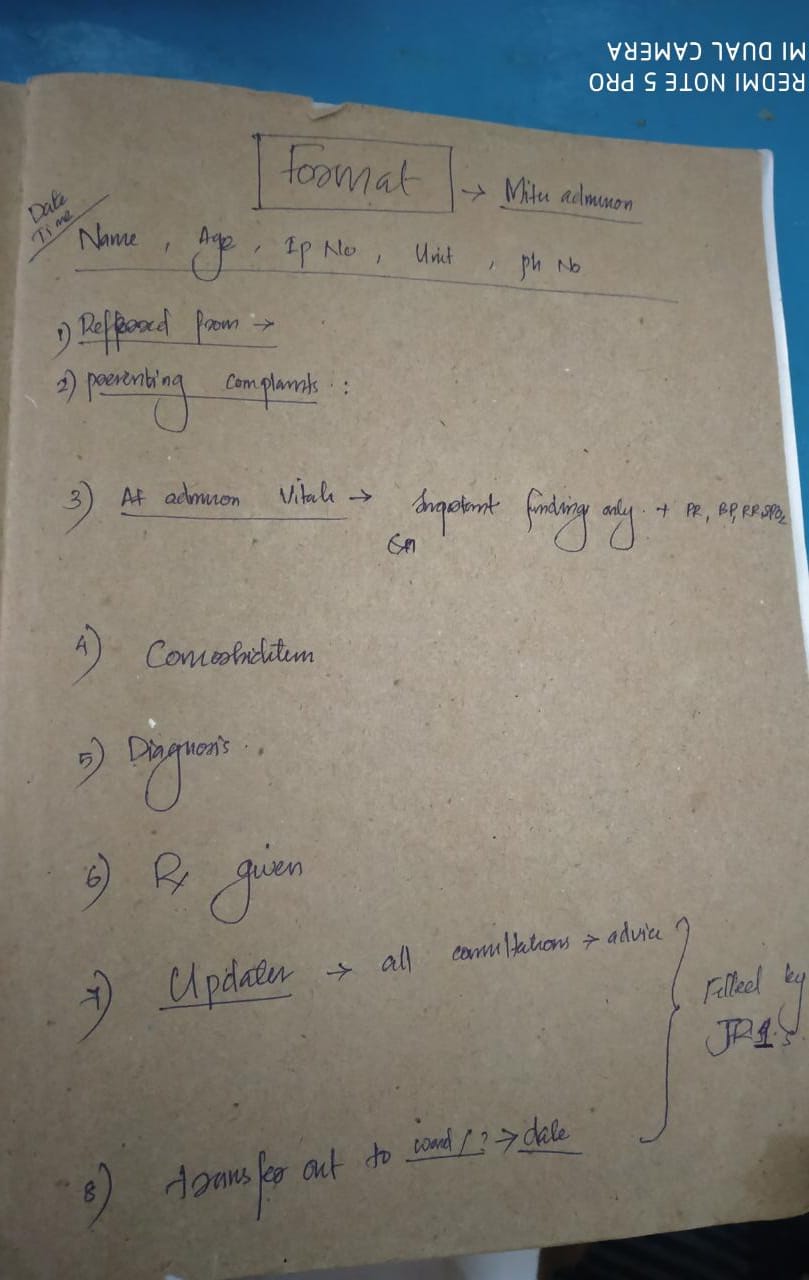 REDMI NOTE 5 PRO
MI DUAL CAMERA
Format → Micu admission
Date
Time
Name , Age , Ip No , Unit , ph No
1) Refferred from →
2) presenting complaints :
3) At admission Vitals → Important finding only + PR, BP, RR, SPO2
4) Comorbidities
5) Diagnosis.
6) Rx given
7) Updates → all consultations → advice
Filled by
JR1s.
8) transfer out to ward / ? → date